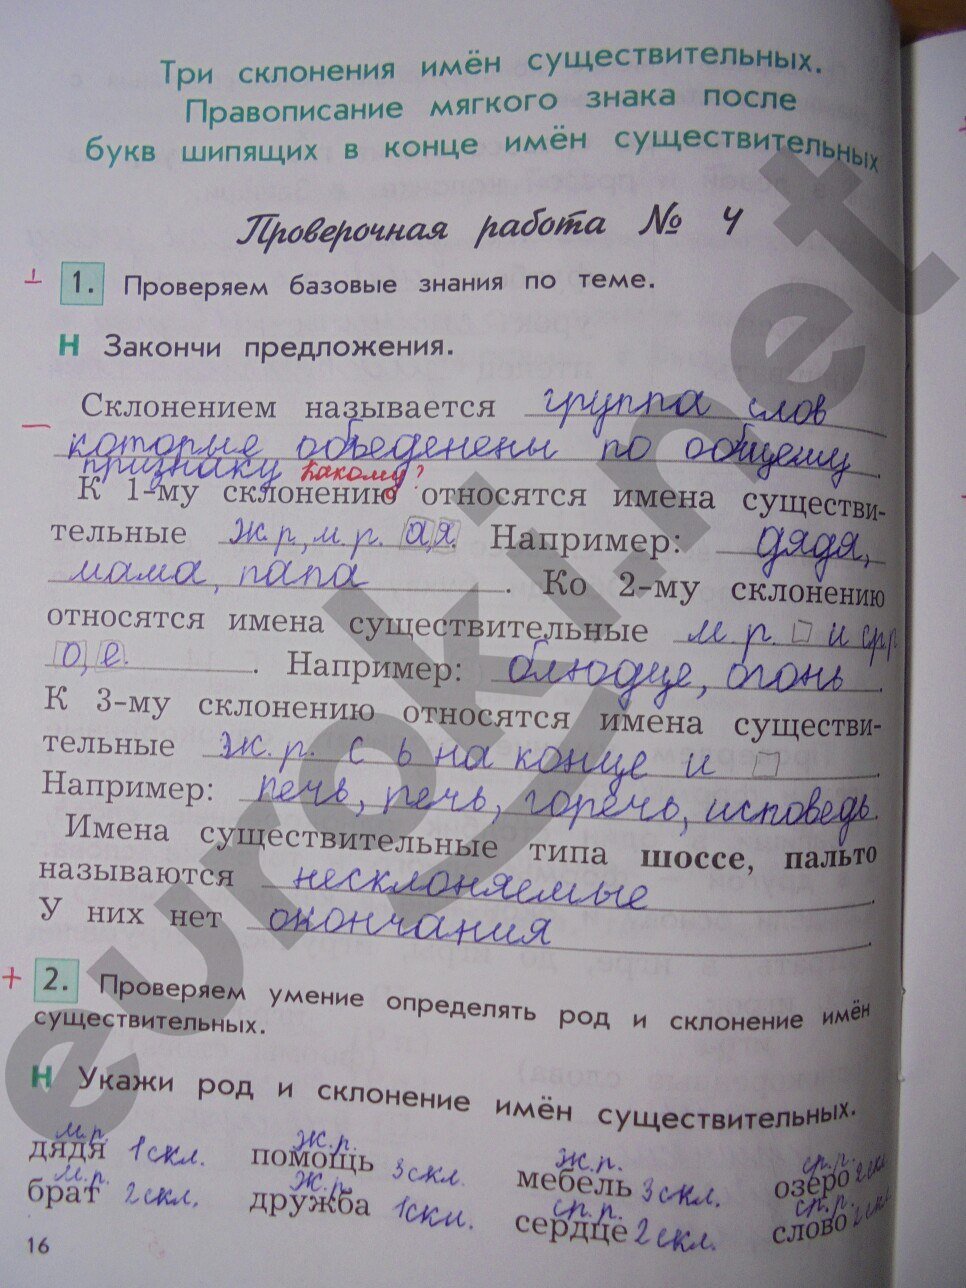 Три склонения имён существительных.
Правописание мягкого знака после
букв шипящих в конце имён существительных
Проверочная работа № 4
1. Проверяем базовые знания по теме.
Н Закончи предложения.
Склонением называется группа слов
которые объеденены по общему
признаку какому?
К 1-му склонению относятся имена существи-
тельные ж.р, м.р. а, я. Например: дядя,
мама, папа. Ко 2-му склонению
относятся имена существительные м.р. и ср.р.
о, е. Например: блюдце, огонь.
К 3-му склонению относятся имена существи-
тельные ж.р. с ь на конце и
Например: печь, речь, горечь, исповедь.
Имена существительные типа шоссе, пальто
называются несклоняемые.
У них нет окончания.
+ 2. Проверяем умение определять род и склонение имён
существительных.
Н Укажи род и склонение имён существительных.
м.р. ж.р. ж.р. ср.р.
дядя 1 скл. помощь 3 скл. мебель 3 скл. озеро 2 скл
м.р. ж.р. ср.р. ср.р.
брат 2 скл. дружба 1 скл. сердце 2 скл. слово 2 скл
16
euroki.net